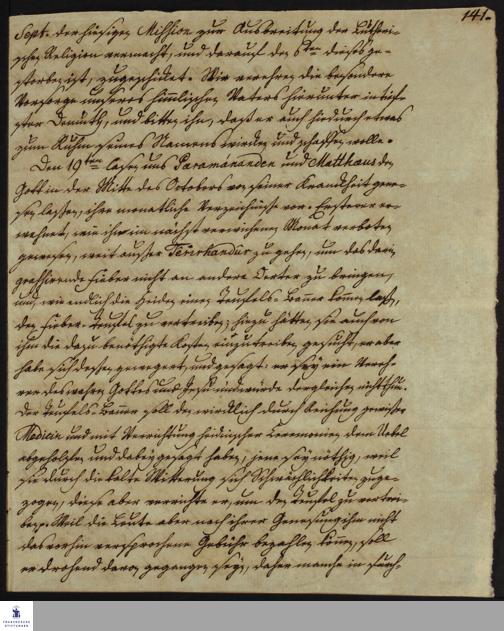 141.
Sept. der hiesigen Mission zur Ausbreitung der Lutheri-
schen Religion vermacht, und darauf den 6ten dieses ge-
storben ist, zugeschickt. Wir verehren die besondere
Vorsorge unseres himmlischen Vaters hierunter in tief-
ster Demuth, und bitten ihn, daß er auch hiedurch etwas
zum Ruhm seines Namens wirken und schaffen wolle.
Den 19ten lasen uns Paramananden und Matthäus den
Gott in der Mitte des Octobers von seiner Kranckheit gene-
sen lassen, ihre monatliche Verzeichnisse vor. Ersterer er-
wehnet, wie ihm im nächst verwichenen Monat verboten
gewesen, weit ausser zu gehen, um das darin
grassirende Fieber nicht an andere Oerter zu bringen,
und wie endlich die Heiden einen Teufels-Banner kommen lassen,
den Fieber-Teufel zu vertreiben; hiezu hätten sie auch von
ihm die dazu benöthigte Kosten einzutreiben gesucht, er aber
habe sich dessen geweigert, und gesagt: er sey ein Vereh-
rer des wahren Gottes und Jesu und würde dergleichen nicht thun.
Der Teufels-Banner soll den würcklich durch Reichung gewisser
Medicin und mit Verrichtung heidnischer Ceremonien dem Uebel
abgeholfen und dabey gesagt haben; jene sey nöthig, weil
sie durch die kalte Witterung sich Schwächlichkeiten zuge-
zogen, diese aber verrichte er, um den Teufel zu vertrei-
ben. Weil die Leute aber nach ihrer Genesung ihm nicht
das vorhin versprochene Gebühr bezahlen können, soll
er drohend davon gegangen seyn, daher manche in Furch-
FRANCKESCHE
STIFTUNGEN